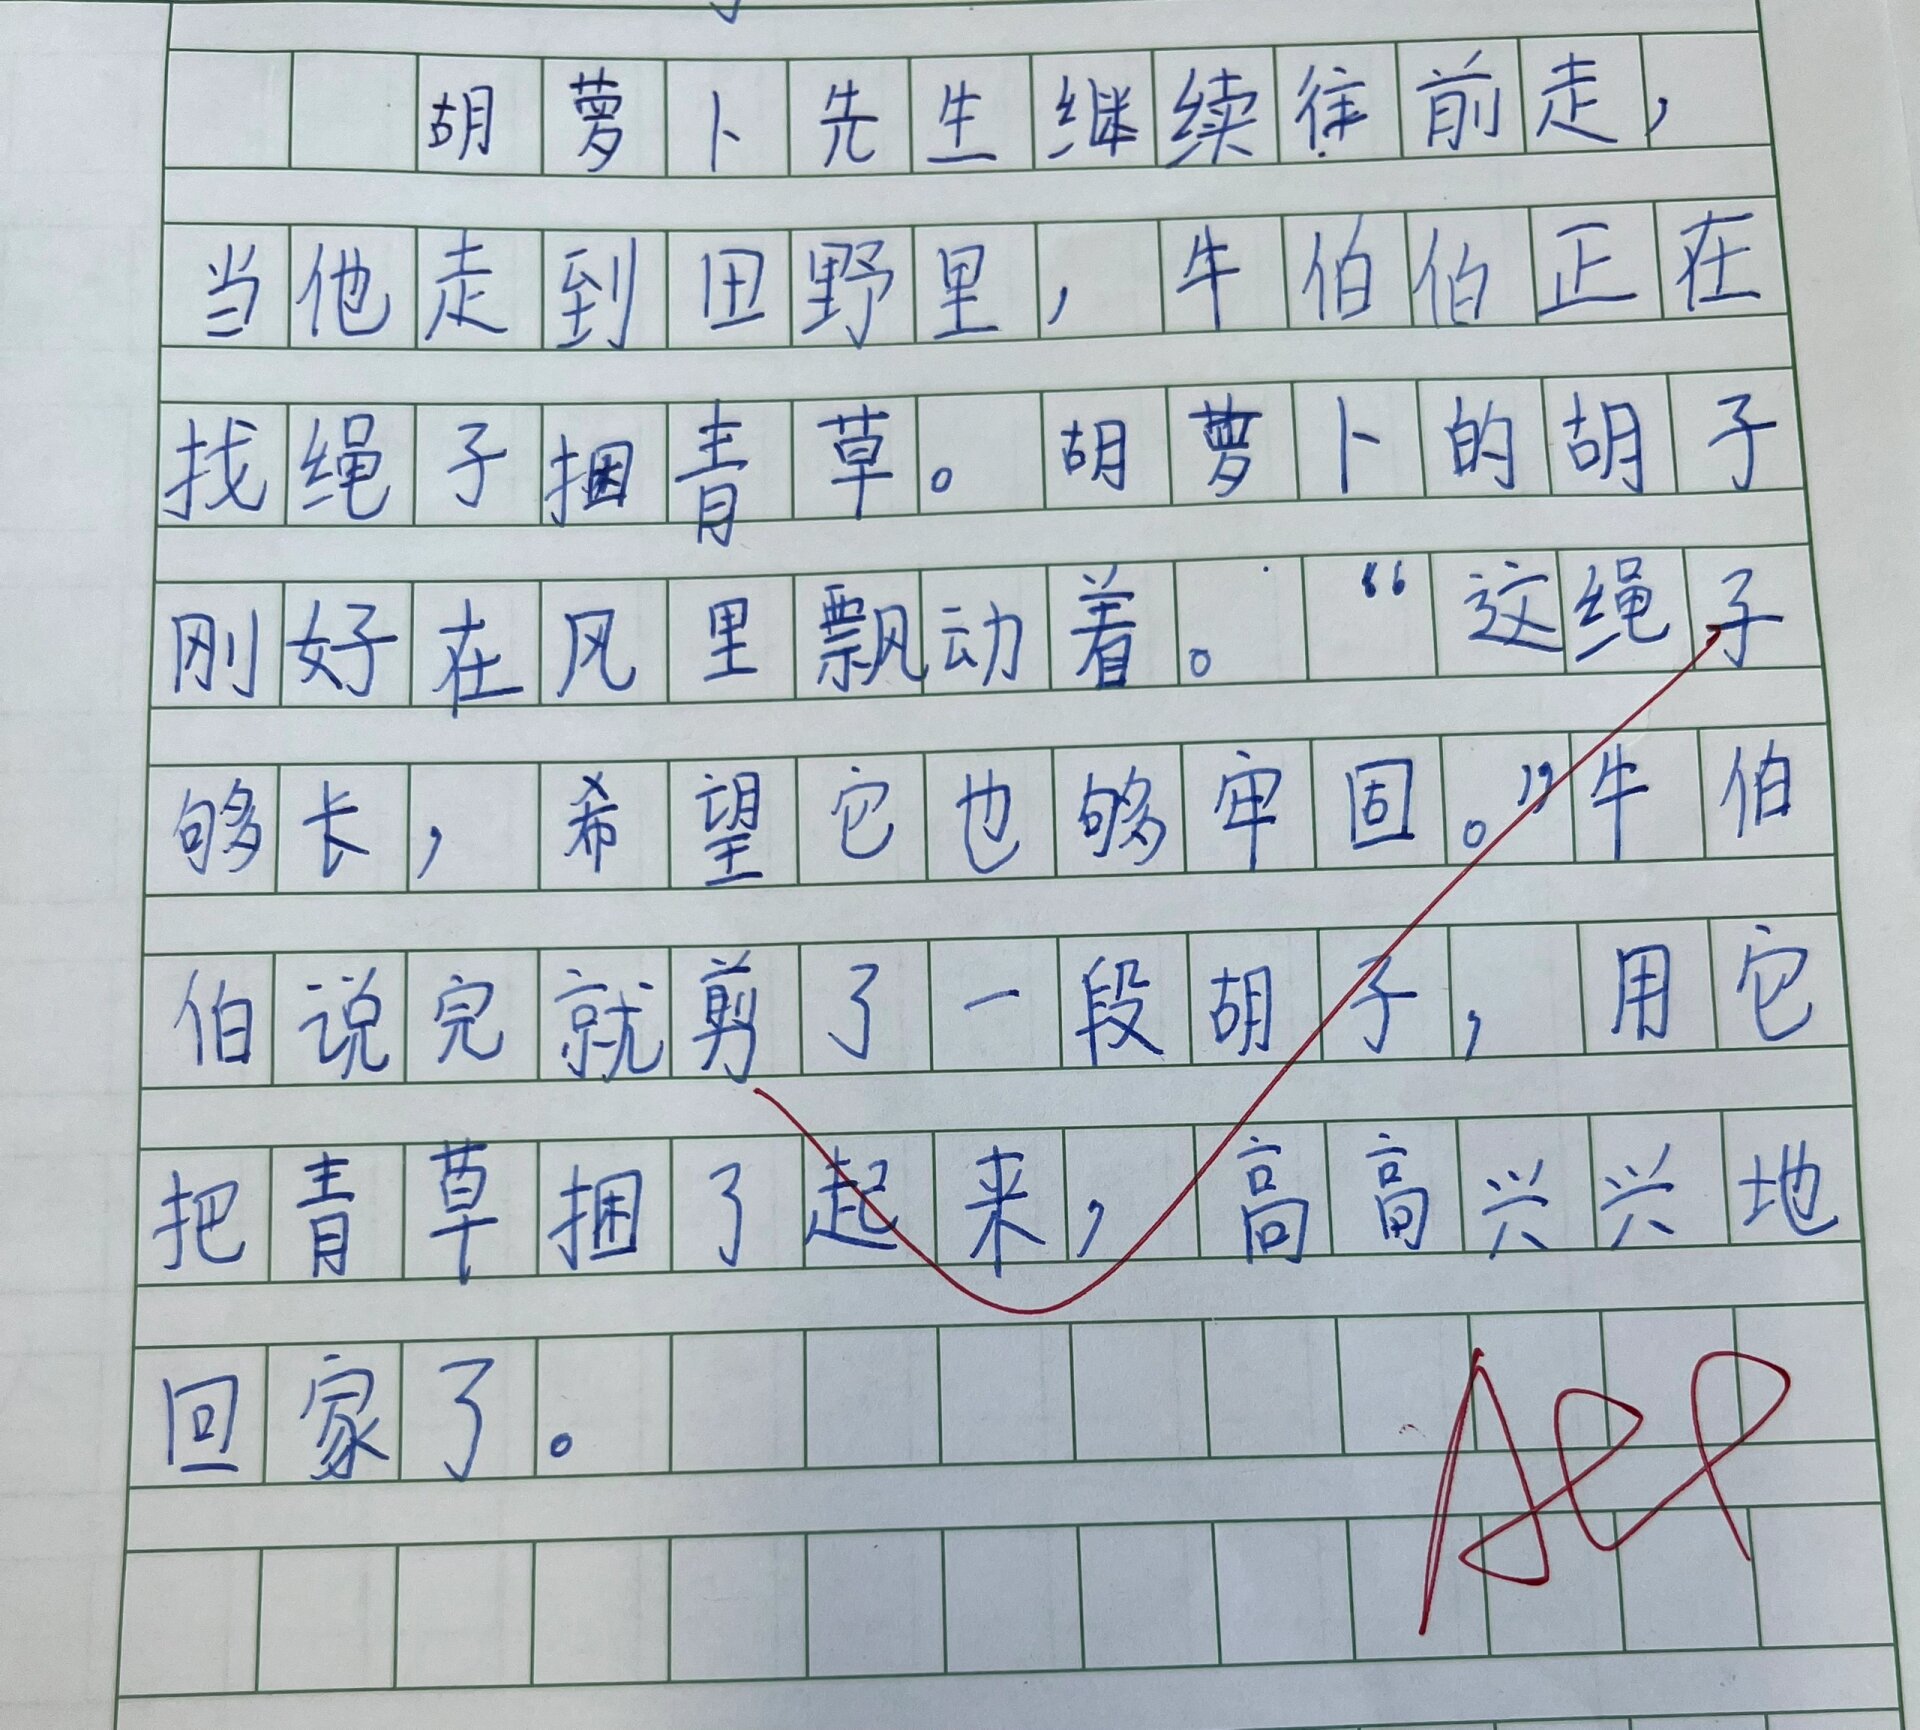 胡萝卜先生继续往前走，
当他走到田野里，牛伯伯正在
找绳子捆青草。胡萝卜的胡子
刚好在风里飘动着。“这绳子
够长，希望它也够牢固。”牛伯
伯说完就剪了一段胡子，用它
把青草捆了起来，高高兴兴地
回家了。